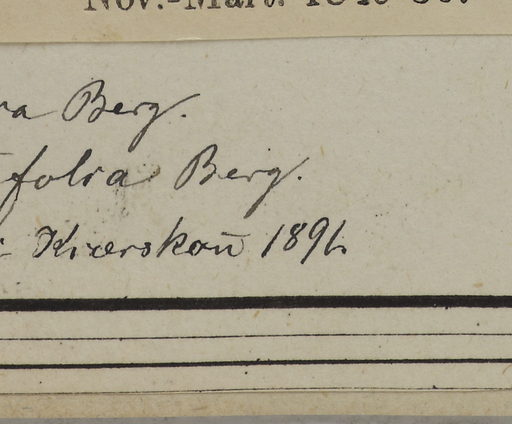 Nov.-Mart.
ra Berg.
folia Berg.
Kiærskou 1891.